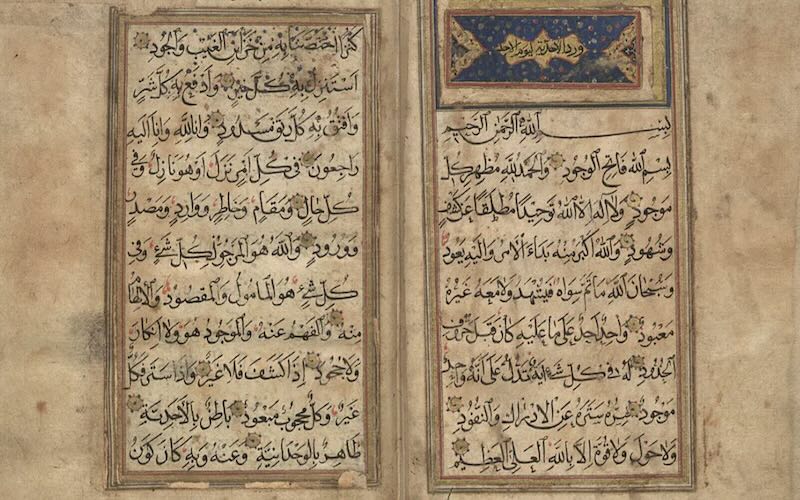 ورد الأحدية ليوم الأحد
بسم الله الرحمن الرحيم
بسم الله فاتح الوجود والحمد لله مظهر كل
موجود ولا اله الا الله توحيدا مطلقا عن كشف
وشهود والله اكبر منه بداء الامر واليه يعود
وسبحان الله ما ثم سواه فيشهد ولا معه غيره
معبود واحد احد على ما عليه كان قبل حروف
الحدود له في كل شئ اية تدل على انه واحد
موجود سره ستره عن الادراك والنفود
ولا حول ولا قوة الا بالله العلى العظيم
كنز اختصنا به من خزاين الغيب والجود
استنزل به كل خير وادفع به كل شر
وافتق به كل رتق مسدود وانا لله وانا اليه
راجعون فى كل امر نزل او هو نازل وفى
كل حال ومقام وخاطر ووارد ومصدر
وورود والله هو المرجو لكل شئ وفى
كل شئ هو المامول والمقصود والالهام
منه والفهم عنه والموجود هو ولا انكار
ولا جحود اذا كشف فلا غير واذا ستر فكل
غير وكل محجوب مبعود باطن بالأحدية
ظاهر بالوحدانية وعنه وبه كان كون